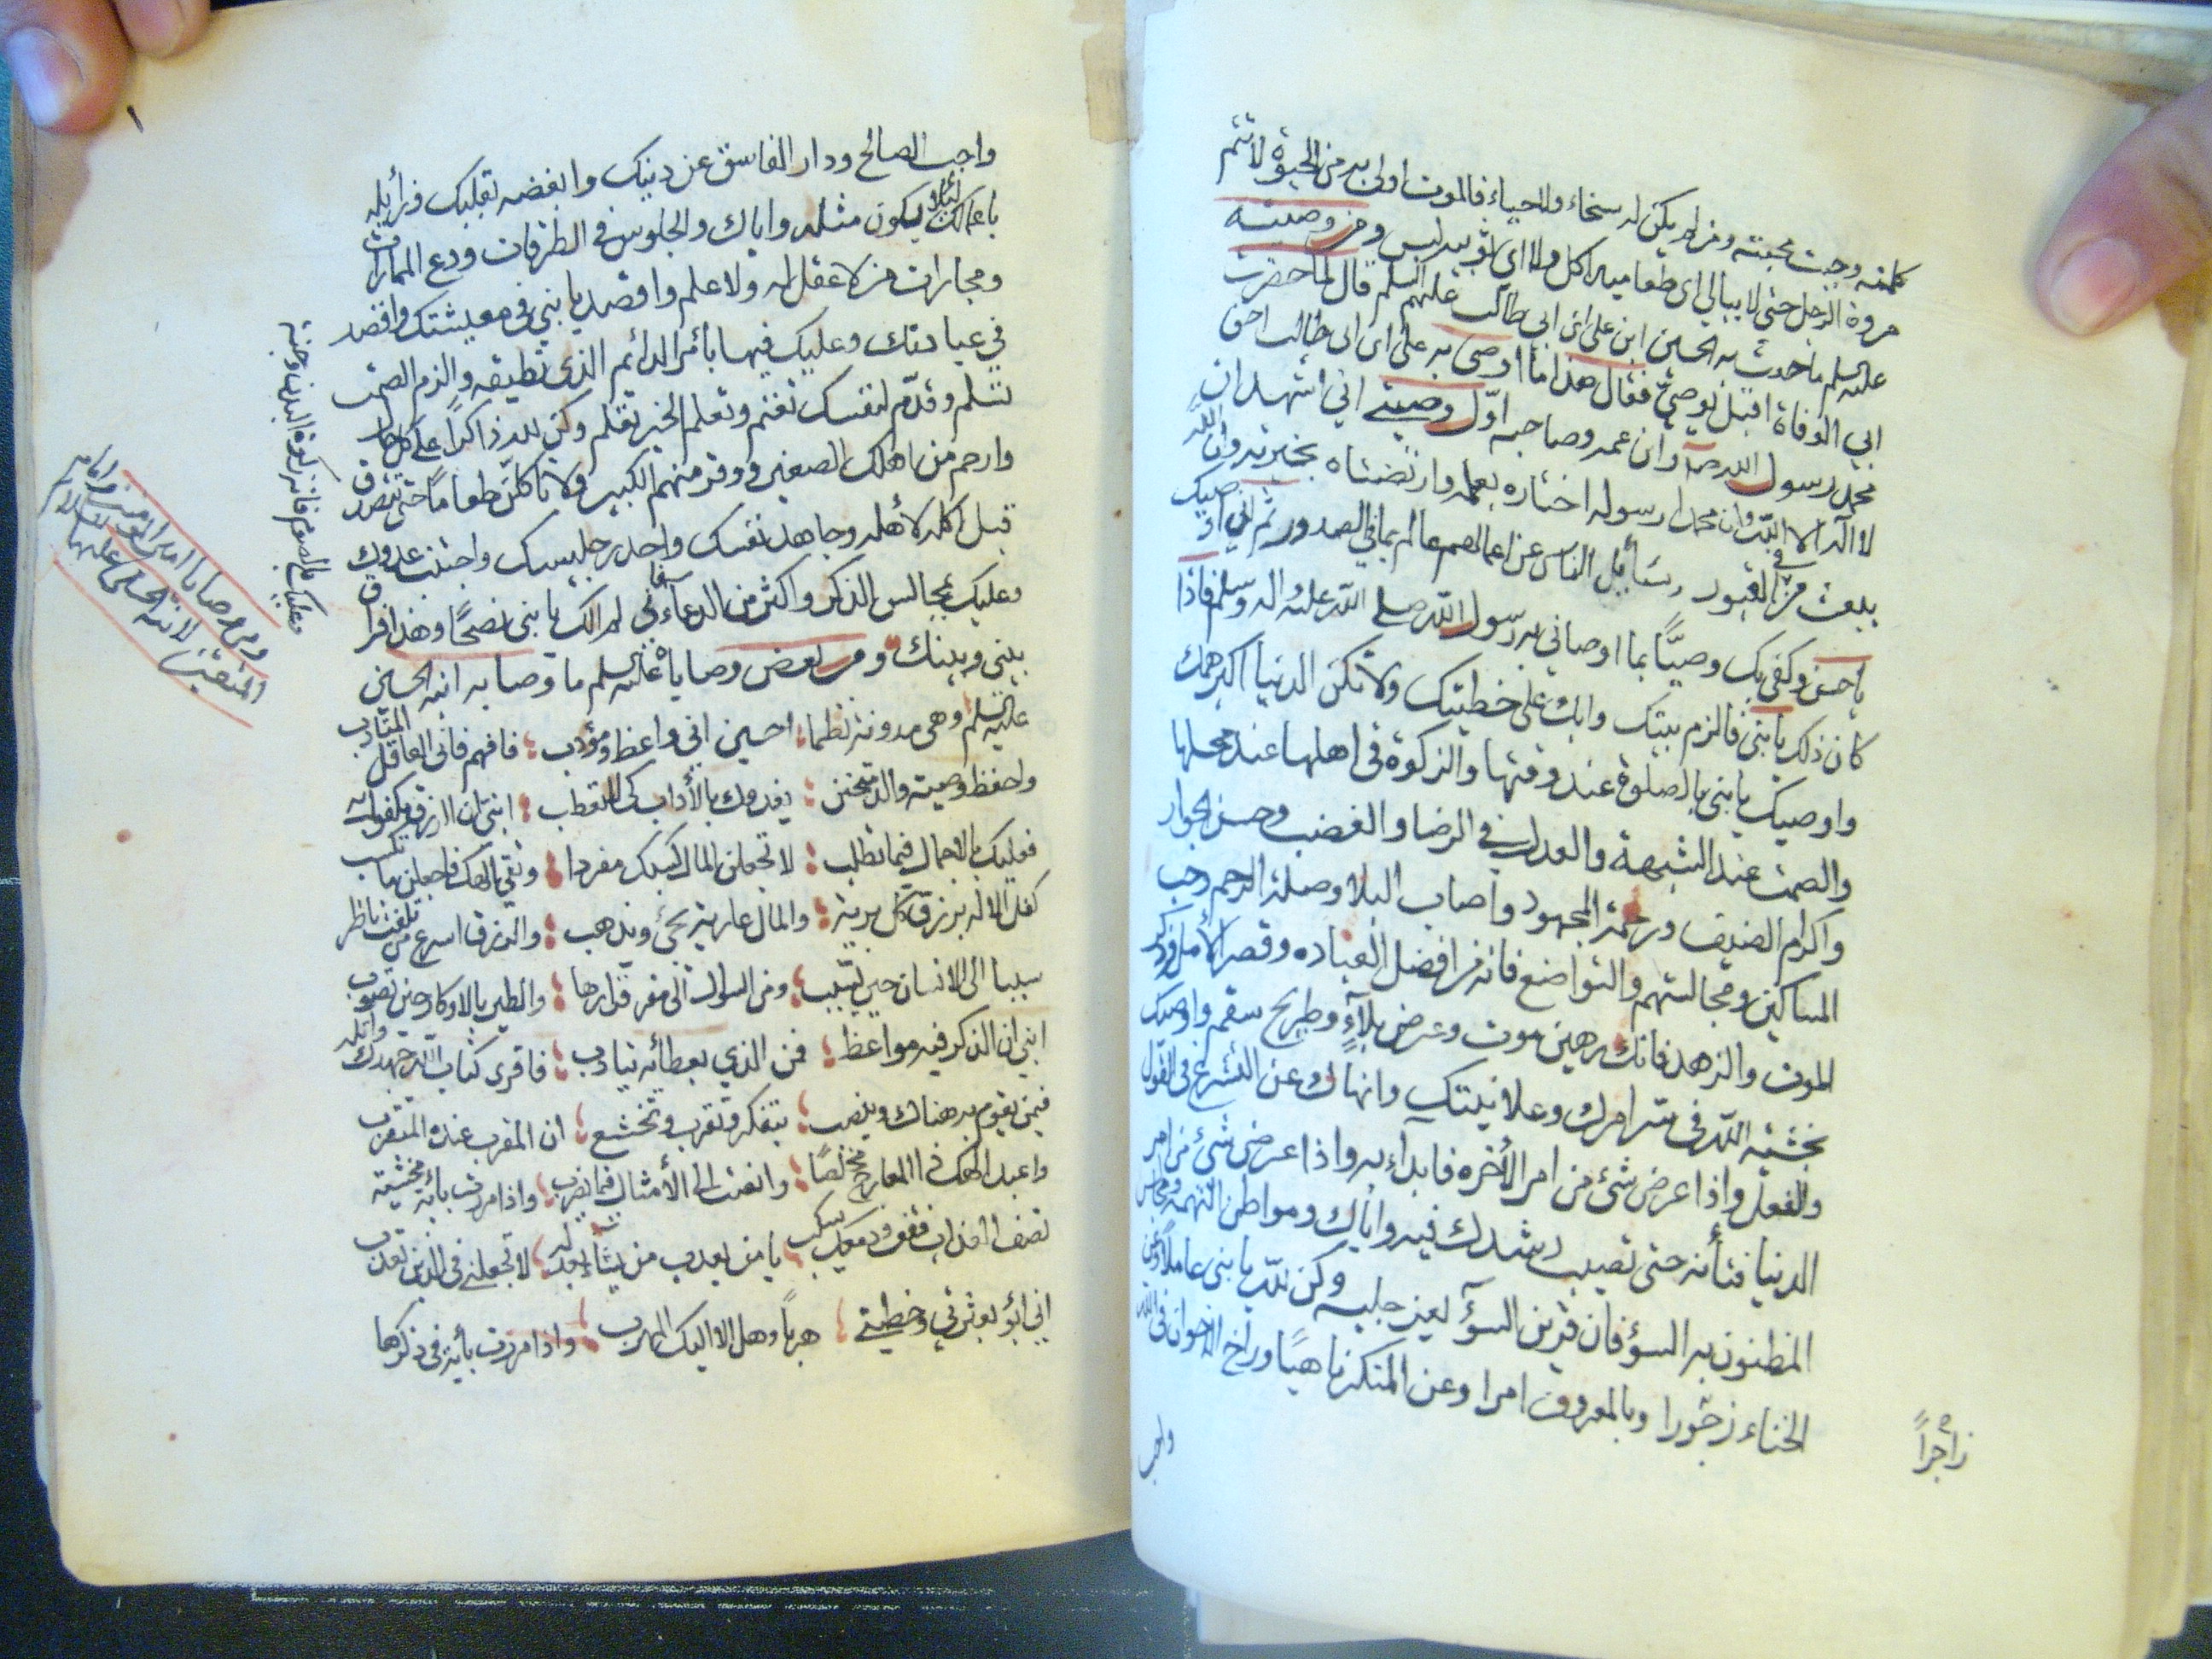 كلمته وجبت محبته ومن لم يكن له سخاء ولا حياء فالموت اولى به من الحيوة لا تتم
مروة الرجل حتى لا يبالي اى طعاميه اكل ولا اى ثوبيه لبس ومن وصيته
عليه السلم ما حدث به الحسين ابن على ابن ابي طالب عليهم السلم قال لما حضرت
ابي الوفاة اقبل يوصي فقال هذا ما اوصى به على ابن ابى طالب اخو
محمد رسول الله ص وابن عمه وصاحبه اوّل وصيتي اني اشهد ان
لا اله الا الله وان محمدا رسوله اختاره بعلمه وارتضاه بخيرته وان الله
يبعث من في القبور وسائل الناس عن اعمالهم عالم بما في الصدور ثم اني اوصيك
يا حسن وكفى بك وصيًّا بما اوصاني به رسول الله صلى الله عليه واله وسلم فاذا
كان ذلك يا بنى فالزم بيتك وابك على خطيتك ولا تكن الدنيا اكبر همك
واوصيك يا بنى بالصلوة عند وقتها والزكوة في اهلها عند محلها
والصمت عند الشبهة والعدل في الرضا والغضب وحسن الجوار
واكرام الضيف ورحمة المجهود واصحاب البلا وصلة الرحم وحب
المساكين ومجالستهم والتواضع فانه من افضل العباده وقصر الأمل وذكر
الموت والزهد فانك رهين موت وعرض بلآءٍ وطريح سقم واوصيك
بخشية الله في سر امرك وعلانيتك وانهاك عن التسرع في القول
والفعل واذا عرض شئ من امر الأخره فابداء به واذا عرض شئ من امر
الدنيا فتأنه حتى تصيب رشدك فيه واياك ومواطن التهمه والمجلس
المظنون به السؤ فان قرين السوٓء يغير جليسه وكن لله يا بنى عاملاً وعن
الخناء زجورا وبالمعروف امرا وعن المنكر ناهيًا وواخ الاخوان في الله
زاجراً
واحب
واحب الصالح ودار الفاسق عن دينك وابغضه بقلبك وزايله
باعمالك لئلا تكون مثله واياك والجلوس في الطرقات ودع المماراة
ومجارات من لا عقل له ولا علم واقصد يا بني في معيشتك واقصد
في عبادتك وعليك فيها بالأمر الدائم الذى تطيقه والزم الصمت
تسلم وقدّم لنفسك تغنم وتعلم الخير تعلم وكن لله ذاكراً على كل حال
وارحم من اهلك الصغير ووقر منهم الكبير ولا تاكلن طعاماً حتى تتصدق
قبل اكله لأهله وجاهد نفسك واحذر جليسك واجتنب عدوك
وعليك بمجالس الذكر واكثر من الدعآء فانى لم الك يا بنى نصحًا وهذا فراق
بينى وبينك ومن بعض وصاياه عليه السلم ما وصا به ابنه الحسين
عليه السلم وهى مدونة نظما: احسين اني واعظ ومؤدب : فافهم فانى العاقل المتأدب
واحفظ وصية والد متحنن : يغدوك بالأداب كى لا تعطب : ابني ان الرزق مكفول به
فعليك بالاجمال فيما تطلب : لا تجعلن المال كسبك مفردا : وتقى الهك فاجعلن ما تكسب
كفل الاله برزق كل برية : والمال عارية يجئ ويذهب : والرزق اسرع من تلفت ناظر
سببا الى الانسان حين يسبب : ومن السيول الى مقر قرارها : والطير بالاوكار حين تصوب
ابني ان الذكر فيه مواعظ : فمن الذي بعظاته يتادب : فاقرى كتاب الله جهدك واتله
فيمن يقوم به هناك وينصب : بتفكر وتقرب وتخشع : ان المقرب عنده المتقرب
واعبد الهك ذا المعارج مخلصًا : وانصت الى الأمثال فيما تضرب : واذا مررت بأية مخشية
تصف العذاب فقف ودمعك يسكب : يا من يعذب من يشاء بعدله : لا تجعلني في الذين تعذب
اني ابؤ بعثرتي وخطيتي : هرباً وهل الا اليك المهرب : واذا مررت بأية في ذكرها
وعليك بالصوم فانه زكوة البدن وجنة
ومن وصايا امير المومنين وامام
المتقين لابنه الحسين عليهما السلام